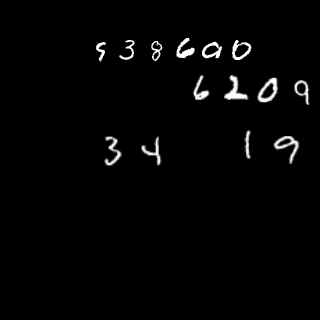 538600
6209
34 19